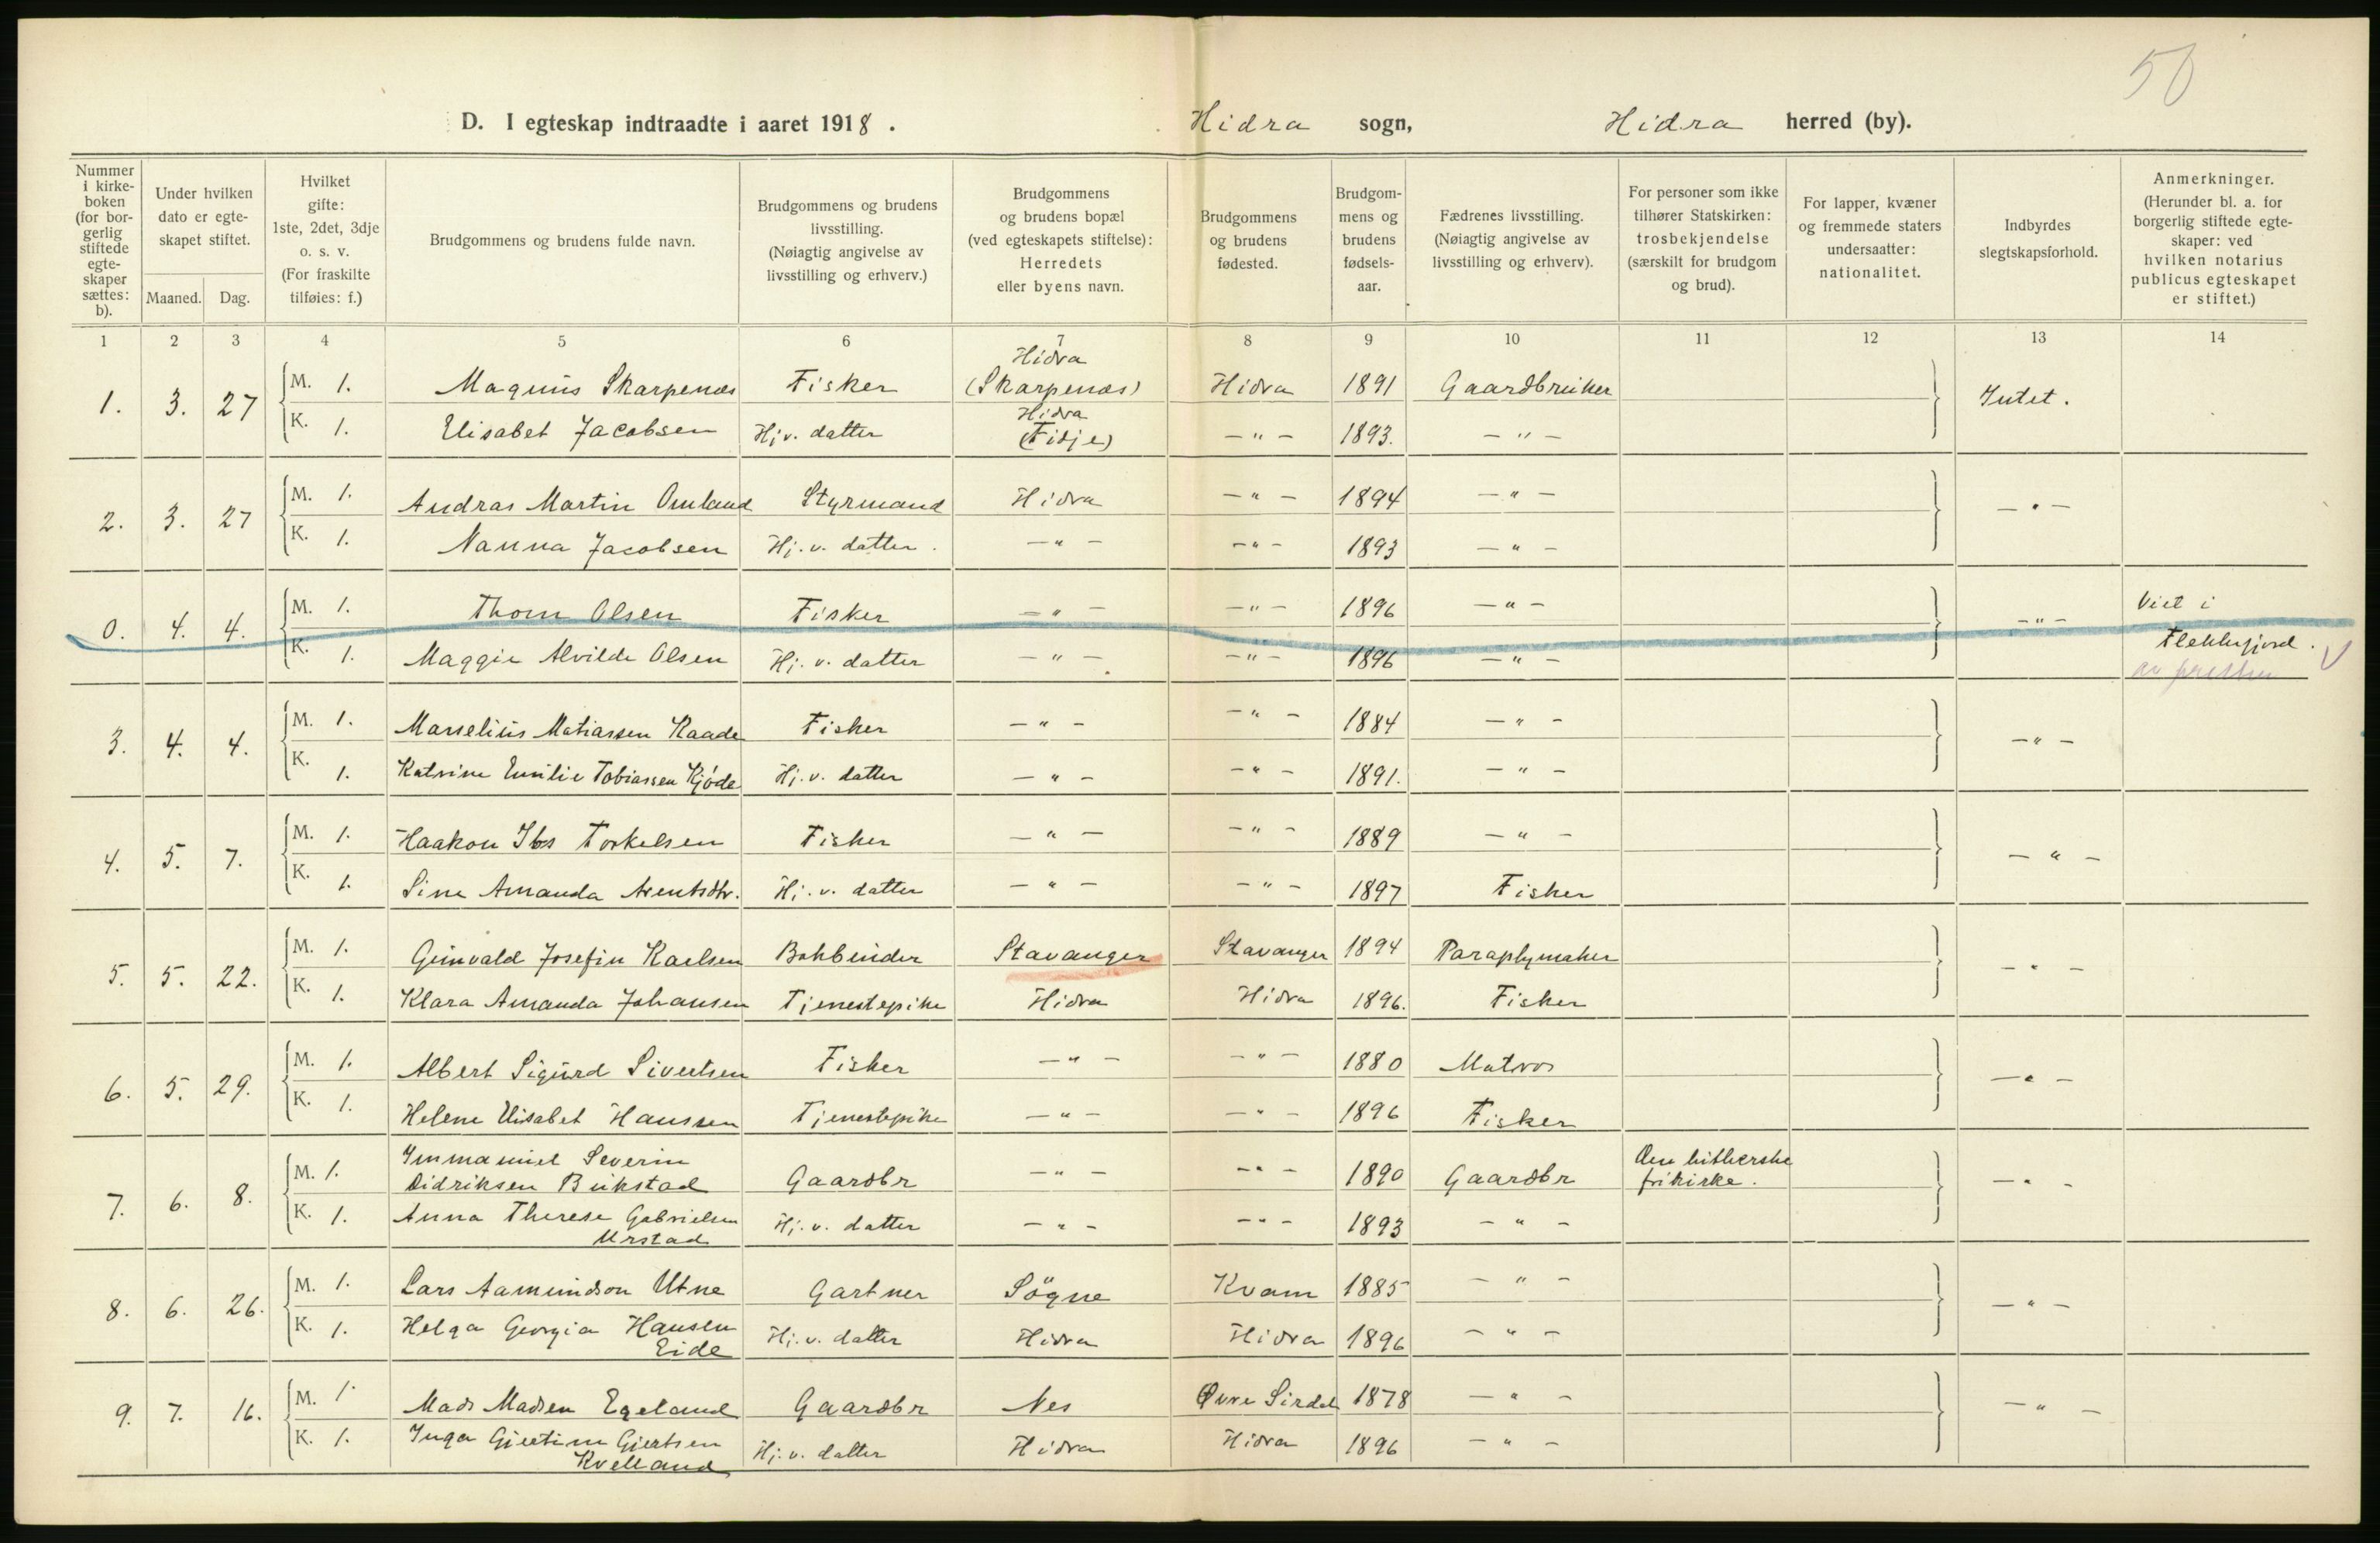 50
D. I egteskap indtraadte i aaret 1918. Hidra sogn, Hidra herred (by).
Nummer i kirkeboken (for borgerlig stiftede egteskaper sættes: b).
Under hvilken dato er egteskapet stiftet.
Maaned. Dag.
Hvilket gifte: 1ste, 2det, 3dje o. s. v. (For fraskilte tilføies: f.)
Brudgommens og brudens fulde navn.
Brudgommens og brudens livsstilling. (Nøiagtig angivelse av livsstilling og erhverv.)
Brudgommens og brudens bopæl (ved egteskapets stiftelse): Herredets eller byens navn.
Brudgommens og brudens fødested.
Brudgommens og brudens fødselsaar.
Fædrenes livsstilling. (Nøiagtig angivelse av livsstilling og erhverv).
For personer som ikke tilhører Statskirken: trosbekjendelse (særskilt for brudgom og brud).
For lapper, kvæner og fremmede staters undersaatter: nationalitet.
Indbyrdes slegtskapsforhold.
Anmerkninger. (Herunder bl. a. for borgerlig stiftede egteskaper: ved hvilken notarius publicus egteskapet er stiftet.)
1 2 3 4 5 6 7 8 9 10 11 12 13 14
1. 3. 27 M. 1. Magnus Skarpenæs Fisker Hidra (Skarpenæs) Hidra 1891 Gaardbruker Intet.
K. 1. Elisabet Jacobsen Hj.v. datter Hidra (Fidje) —"— 1893. —"—
2. 3. 27 M. 1. Andras Martin Omland Styrmand Hidra —"— 1894 —"— —"—
K. 1. Nanna Jacobsen Hj.v. datter. —"— —"— 1893 —"—
0. 4. 4. M. 1. Thom Olsen Fisker —"— —"— 1896 —"— —"— Viet i
K. 1. Maggie Alvilde Olsen Hj.v. datter —"— —"— 1896 —"— Flekkefjord.
av presten
3. 4. 4. M. 1. Marselius Matiassen Raade Fisker —"— —"— 1884 —"— —"—
K. 1. Katrine Emilie Tobiassen Kjøde Hj.v. datter —"— —"— 1891. —"—
4. 5. 7. M. 1. Haakon Ibs Torkelsen Fisker —"— —"— 1889 —"— —"—
K. 1. Sine Amanda Arentsdtr. Hj.v. datter —"— —"— 1897 Fisker
5. 5. 22. M. 1. Gunvald Josefin Karlsen Bokbinder Stavanger Stavanger 1894 Paraplymaker —"—
K. 1. Klara Amanda Johansen Tjenestepike Hidra Hidra 1896. Fisker
6. 5. 29. M. 1. Albert Sigurd Sivertsen Fisker —"— —"— 1880 Matros —"—
K. 1. Helene Elisabet Hanssen Tjenestepike —"— —"— 1896 Fisker
7. 6. 8. M. 1. Immanuel Severin Didriksen Bukstad Gaardbr —"— —"— 1890 Gaardbr Den lutherske frikirke. —"—
K. 1. Anna Therese Gabrielsen Urstad Hj.v. datter —"— —"— 1893 —"—
8. 6. 26. M. 1. Lars Aamundson Utne Gartner Søgne Kvam 1885 —"— —"—
K. 1. Helga Georgia Hansen Eide Hj.v. datter Hidra Hidra 1896 —"—
9. 7. 16. M. 1. Mads Madsen Egeland Gaardbr Nes Øvre Sirdal 1878 —"— —"—
K. 1. Inga Gjertine Gjertsen Kvelland Hj.v. datter Hidra Hidra 1896 —"—